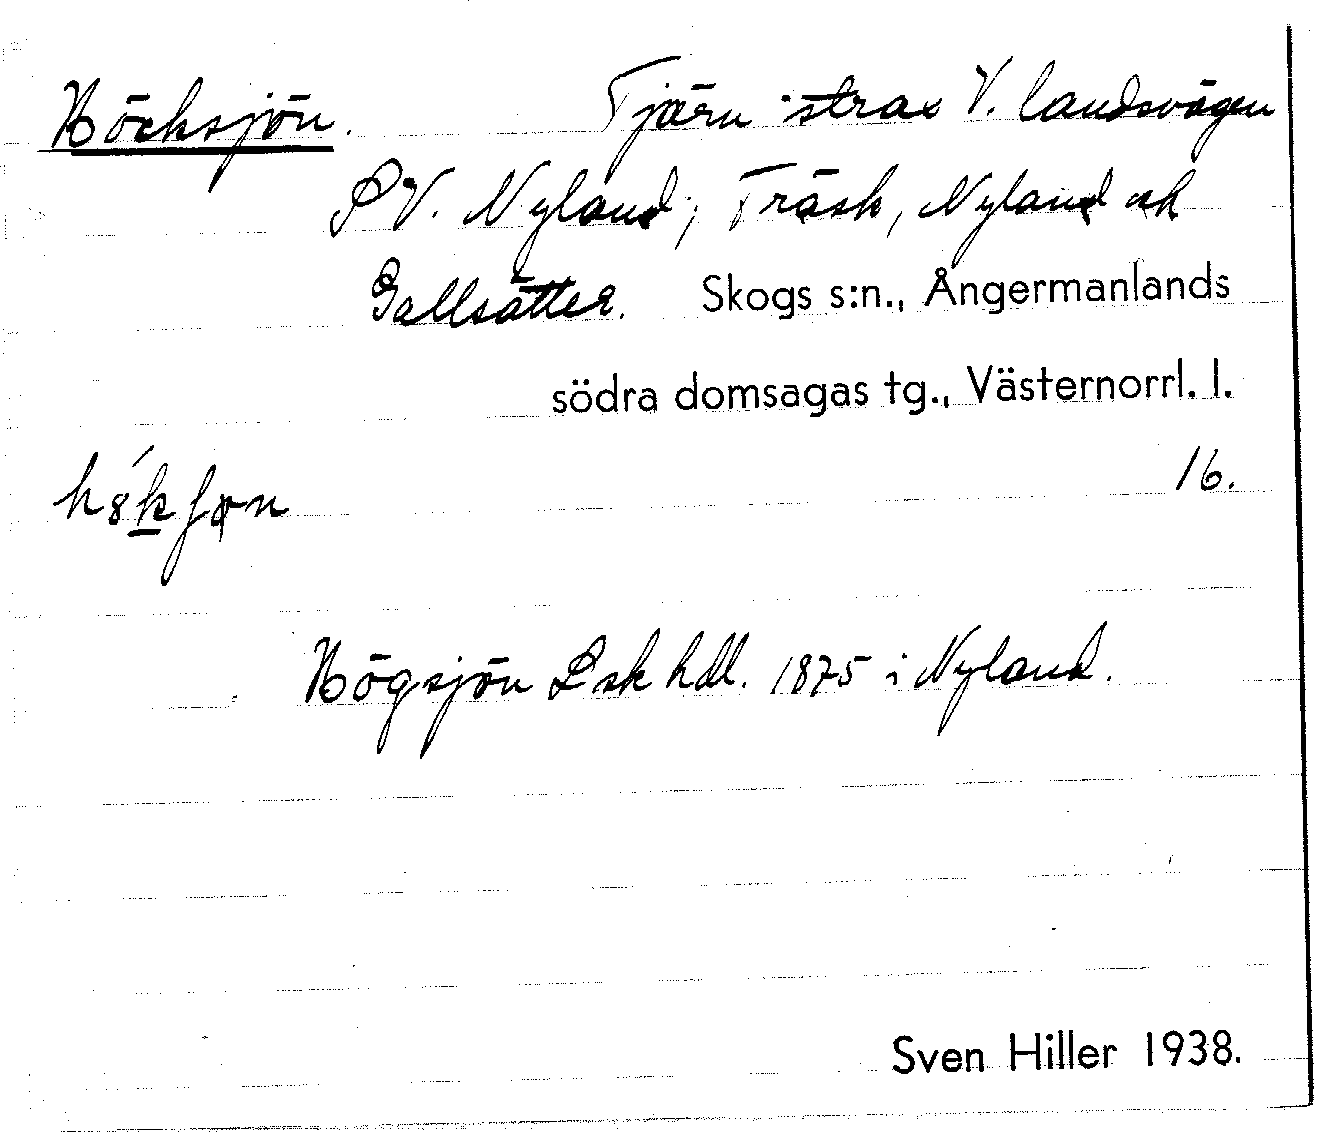 Höcksjön. Tjärn strax V. landsvägen
SV. Nyland; Träsk, Nyland och
Gallsätter. Skogs s:n., Ångermanlands
södra domsagas tg., Västernorrl. l.
16.
Högsjön Lsk hdl. 1875 i Nyland.
Sven Hiller 1938.